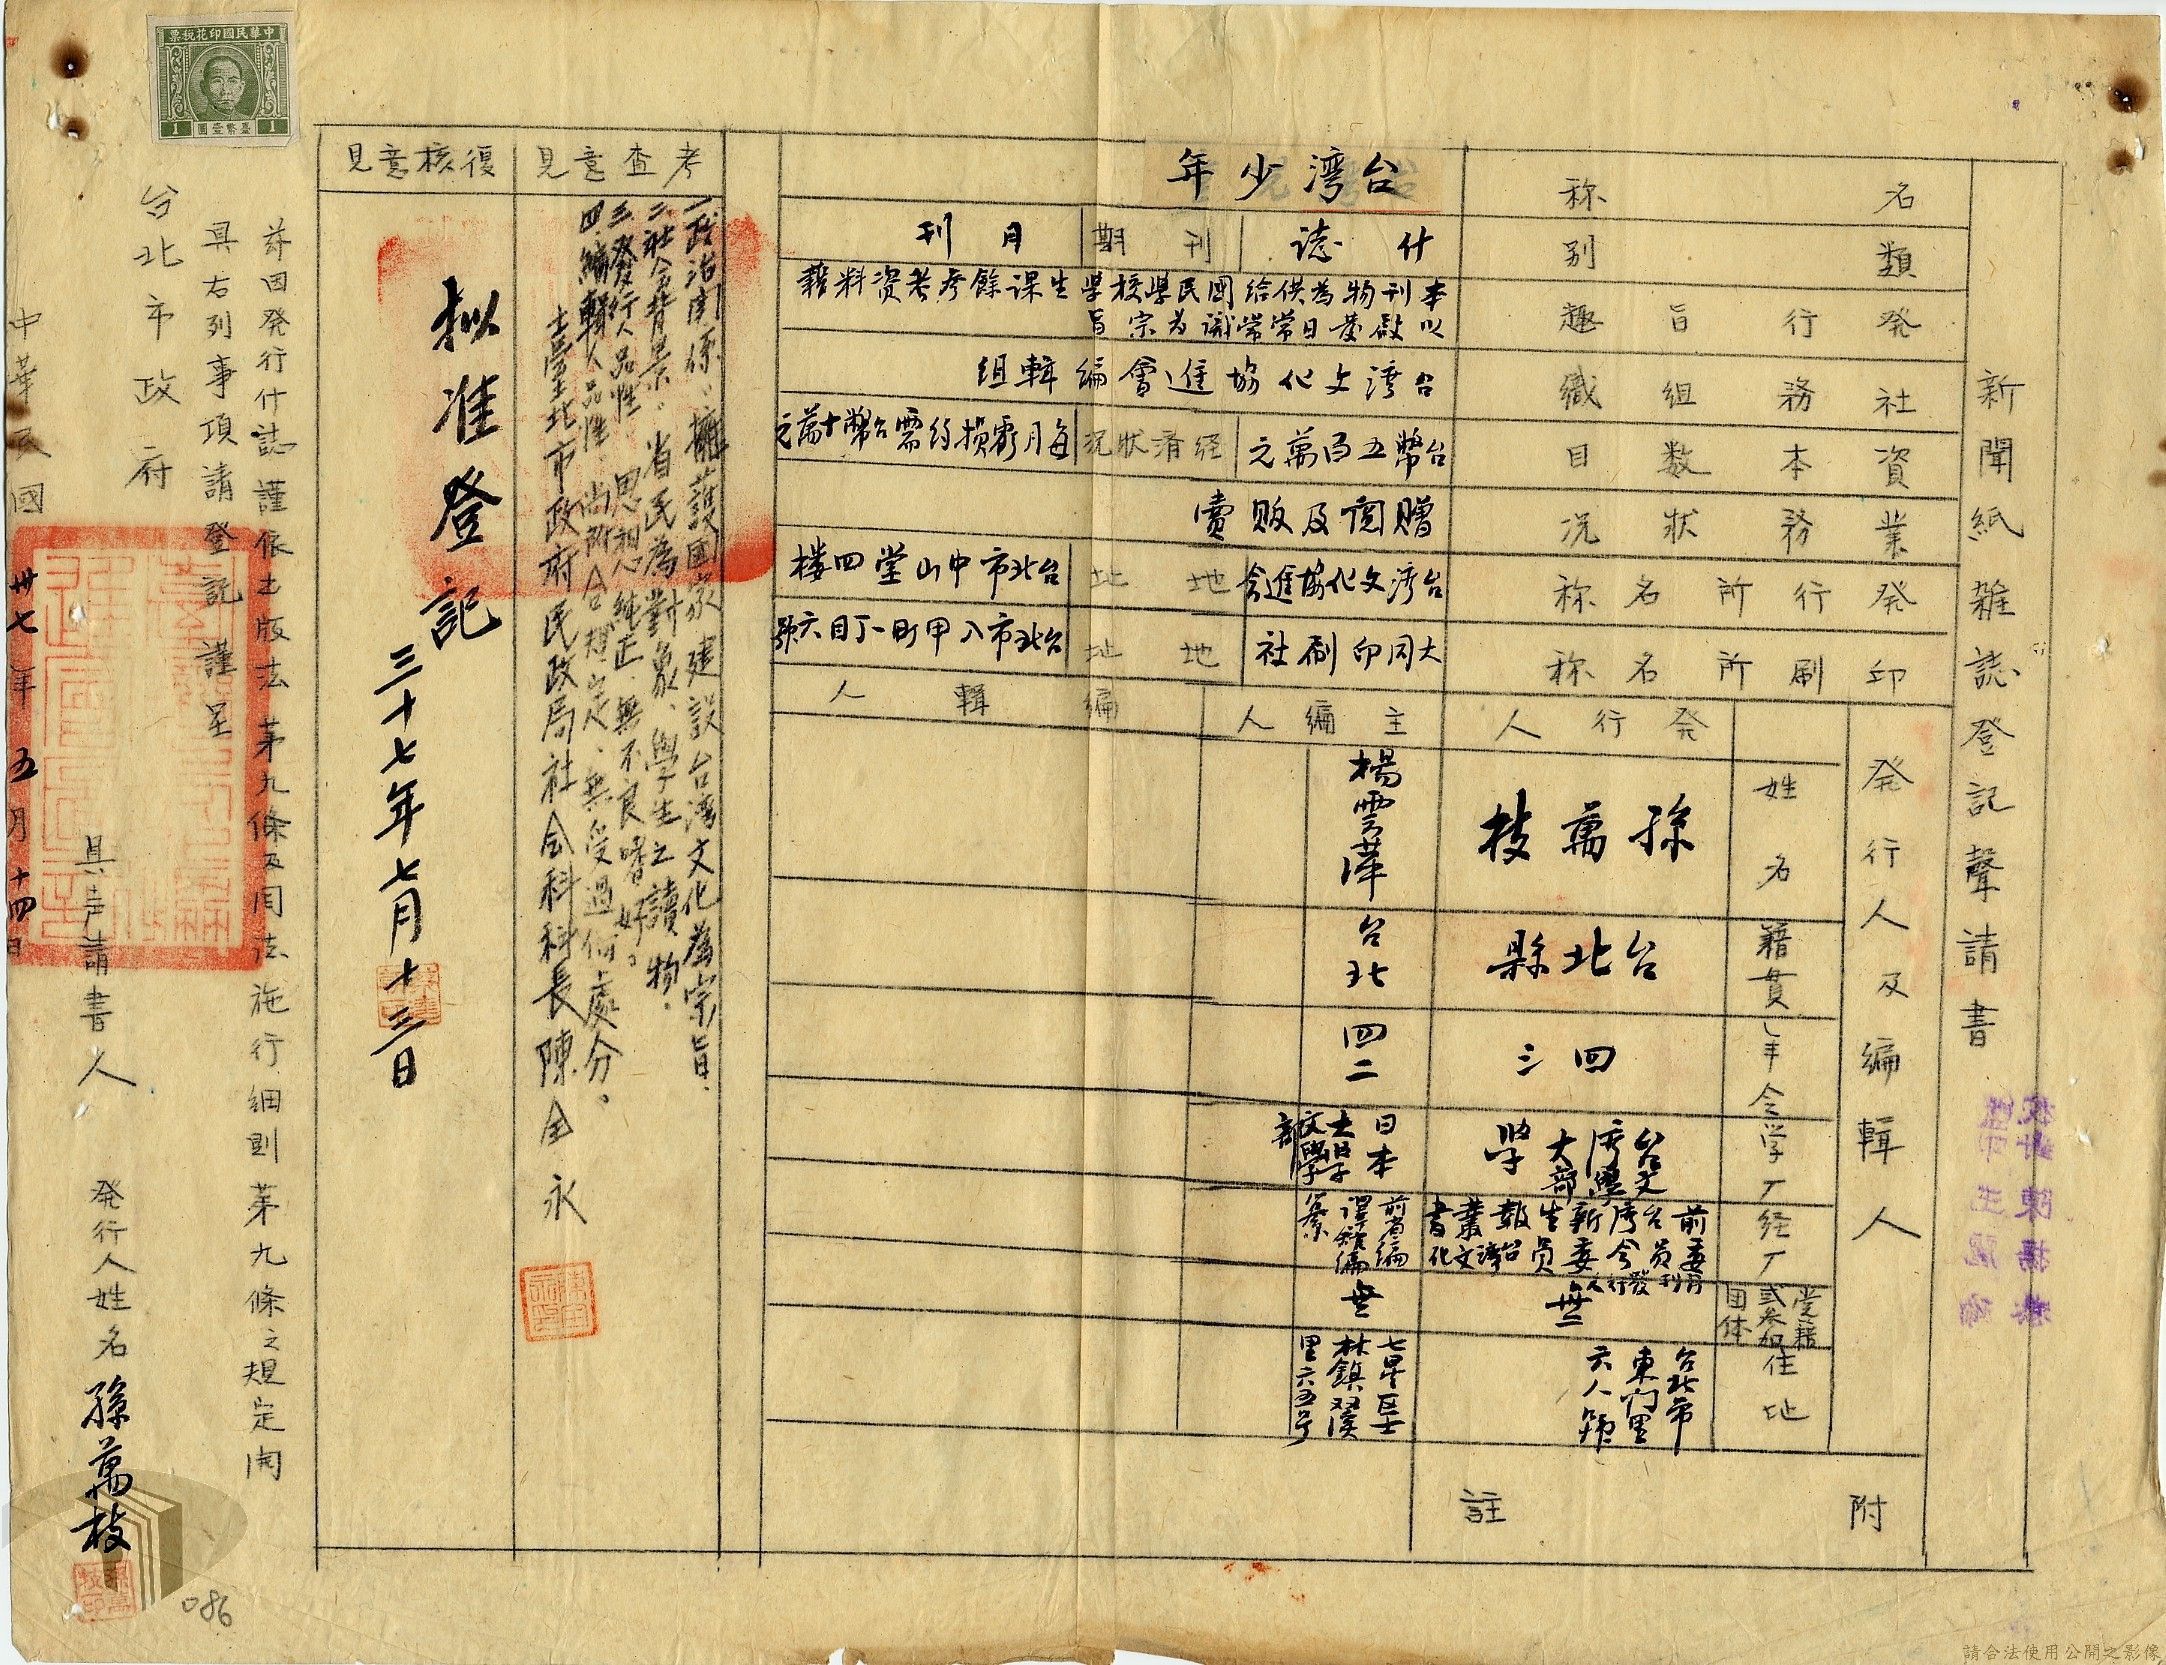 新聞紙雜誌登記聲請書
名称
台湾少年
類別
什誌
刊期
月刊
発行旨趣
本刊物為供給國民學校學生课餘參考資料藉
以啟發日常常識為宗旨
社務組織
台湾文化協進會編輯組
資本数目
台幣五百萬元
経済狀況
每月虧损约需台幣十萬元
業務狀況
贈閱及販賣
発行所名称
台湾文化協進会
地址
台北市中山堂四楼
印刷所名称
大同印刷社
地址
台北市入甲町一丁目六號
発行人及編輯人
発行人
主編人
編輯人
姓名
孫萬枝
楊雲萍
籍貫
台北縣
台北
年令
四三
四二
学厂
台湾大学
文學部
日本
大學
文學
部
経厂
前台湾新生報叢書
委員会委员台湾文化
月刊發行人
前省編
譯館編
纂
党籍
或参加
团体
無
無
住址
台北市
東門里
六八號
七星區士
林鎮双溪
里六五号
附註
考查意見
一政治関係、擁護國家建設台湾文化為宗旨、
二社会背景。省民為對象、學生之讀物。
三發行人品性 思想純正、無不良嗜好。
四編輯人品性、尚附合規定、無受過何處分。
臺北市政府民政局社会科科長陳全永
復核意見
拟准登記
三十七年七月十三日
茲因発行什誌謹依出版法第九條及同法施行細則第九條之規定開
具右列事項請登記 謹呈
台北市政府
具声請書人 発行人姓名 孫萬枝
中華民國卅七年五月十四日
中華民國印花稅票
1 臺幣壹圓 1
086
請合法使用公開之影像